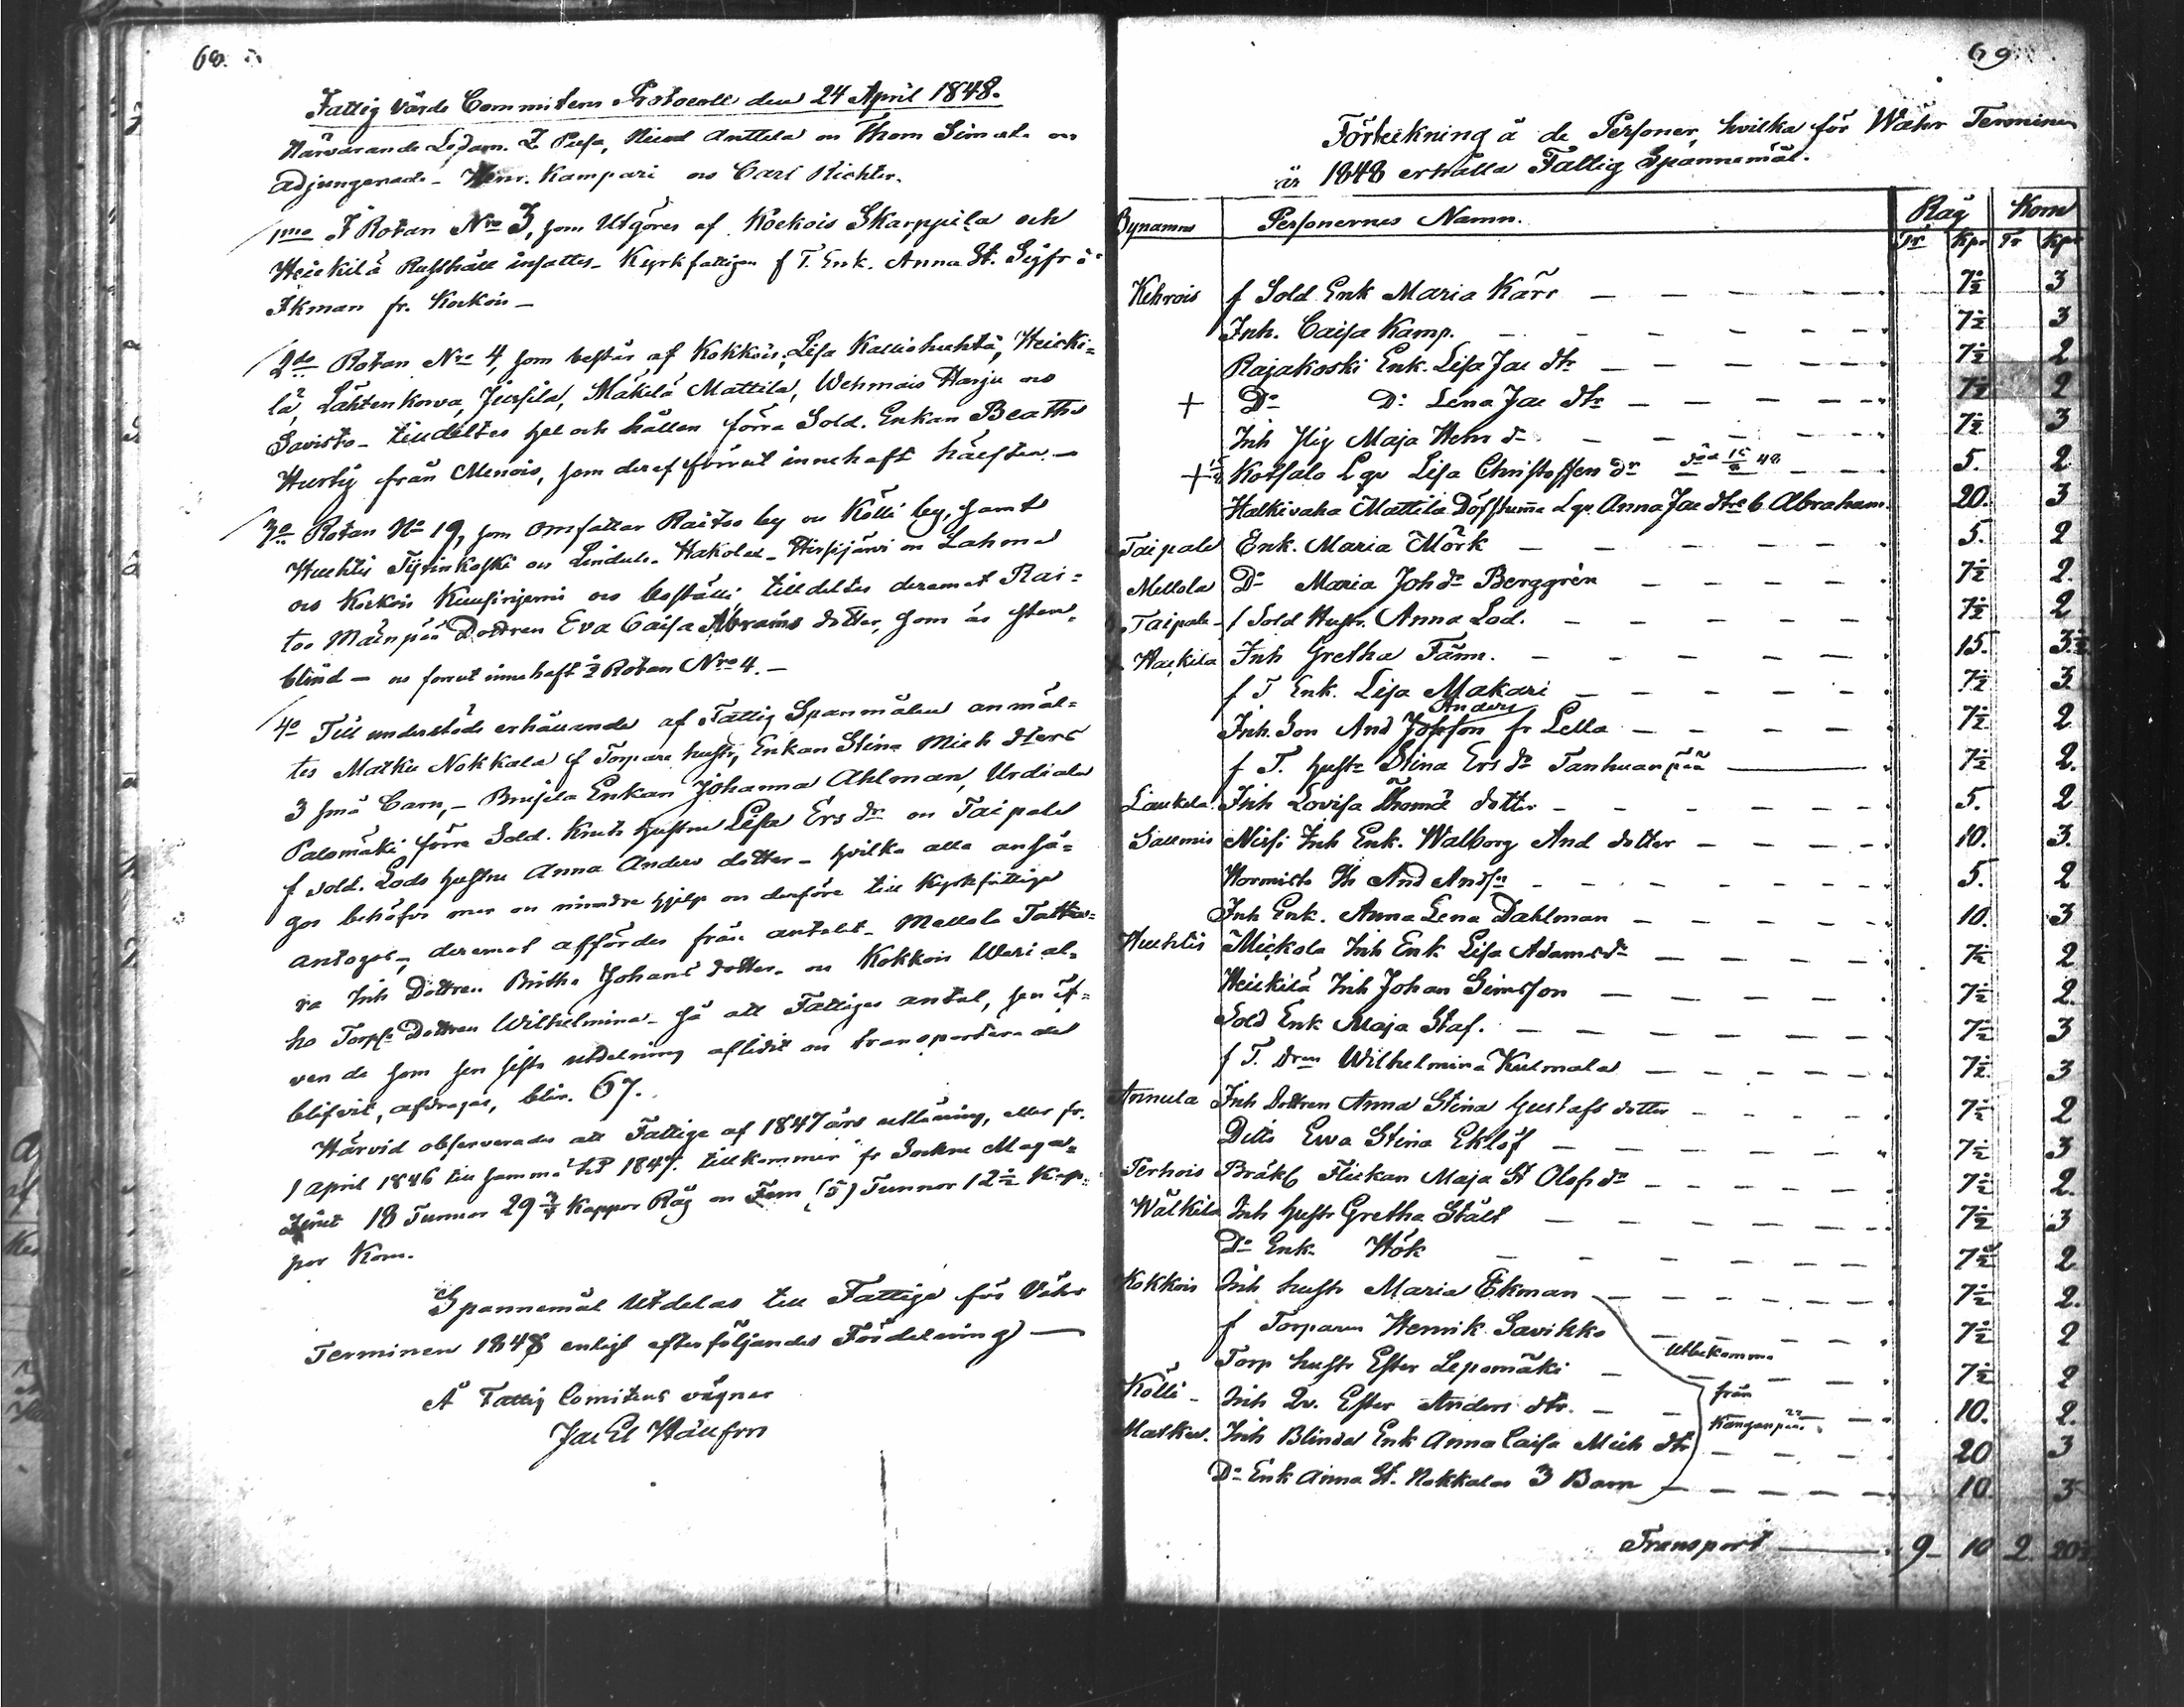 68.
Fattig Vårds Commitens Protocoll den 24 April 1848.
Närvarande Ledam. Anttila oc Thom Simola oc
adjungerade - Henr. Kampari oc Carl Richter.
1mo I Rotan Nro 3, som Utgöres af Kockois Skarppila och
Heickilä Rusthåll insattes - Kyrkfattigen f T. Enk. Anna St. Sigfr
Ekman fr. Kockois -
2do Rotan Nro 4, som består af Kokkois, Lisa Kalliohuhta, Heicki=
lä, Lähtenkorva, Jussila, Mäkilä Mattila, Wehmais Harju oc
Savisto - tilldeltes hel och hållen förra Sold. Enkan Beatha
Hurtig från Menois, som deraf förrut innehaft hälften -
3o Rotan No 19, som omfattar Raitoo by oc Kölli by, samt
Huhtis Tyrinkoski oc Lindula Hakola - Hirsijärvi oc Lahma
oc Kockois oc Boställe tilldeltes deremot Rai=
too Mäenpää Dottren Eva Caisa Abrams dotter, som är sten=
blind - oc forrut innehaft ½ Rotan Nro 4. -
4o Till understöds erhållande af Fattig Spanmålen anmäl=
tes Matku Nokkala f Torpare hustr, Enkan Stina Mich dters
3 små Barn, - Brusila Enkan Johanna Ahlman, Urdiala
Palomäki förra Sold. Hustru Lisa Ers dr oc Taipale
f Sold. Lods Hustru Anna Anders dotter - hvilka alla anså=
gos behöfva mer oc mindre hjelp oc derföre till Kyrkfattige
antogos, deremot affördes från antalet - Mellola Tattar=
ra Inh Dottren Britha Johans dotter - oc Kokkois
ho Torps Dottren Wilhelmina - så att Fattiges antal, sen äf=
ven de som sen sista utdelning aflidit oc transporterade
blifvit, afdragas, blir. 67.
Härvid observerades att Fattige af 1847 års utlåning, eller fr.
1 April 1846 till samma tid 1847. tillkommer fr Sockne Maga=
zinet 18 Tunnor 29 ¾ Kappor Råg oc Fem (5) Tunnor 12 ½ Kap=
por Korn.
Spannemål Utdelas till Fattige för Vårs
Terminen 1848 enligt efterföljande Fördelning -
Å Fattig Comiteens vägnar
69
Förteckning å de Personer, hvilka för Wahr Terminen
år 1848 erhålla Fattig Spannemål.
Bynamn Personernes Namn. Råg Korn
Tr Kpr Tr Kpr
Kehrois f Sold Enk Maria Kärr 7½ 3
Inh. Caisa Kamp. 7½ 3
Rajakoski Enk. Lisa Jac dtr 7½ 2
+ Do Do Lena Jac dtr 7½ 2
Inh Pig Maja Henr dr 7½ 3
+ Kotsalo Lqv Lisa Christoffers dr död 15/8 48 5. 2
Halkivaha Mattila Döfstumma Lqv Anna Jac dtr C Abraham 20. 3
Taipale Enk. Maria Mörk 5. 2
Mellola Do Maria Joh dr Berggrén 7½ 2.
Taipale f Sold Hustr. Anna Lod. 7½ 2
Hackila Inh Gretha Fänn. 15. 3½
f T Enk. Lisa Makari 7½ 3
Anders
Inh. Son And Johsson fr Lella 7½ 2.
f T. hustr Stina Ers dr Tanhuanpää 7½ 2.
Laukela Inh Lovisa Thomæ dotter 5. 2
Salmis Nissi Inh Enk. Walborg And dotter 10. 3.
Hormisto And Andsn 5. 2
Inh Enk. Anna Lena Dahlman 10. 3
Huhtis Mickola Inh Enk Lisa Adams dr 7½ 2
Heickilä Inh Johan Simsson 7½ 2.
Sold Enk Maja Staf. 7½ 3
f T. Dren Wilhelmina Kulmala 7½ 3
Annula Inh Dottren Anna Stina Gustafs dotter 7½ 2
Ditto Ewa Stina Eklöf 7½ 3
Terhois Bräkl Flickan Maja St Olofs dr 7½ 2.
Wälkilä Inh hustr Gretha Stålt 7½ 3
Do Enk. Hök 7½ 2
Kokkois Inh hustr Maria Ekman 7½ 2.
f Torparen Henrik Savikko 7½ 2
Utbekomma
Torp hustr Ester Lepomäki 7½ 2
från
Kölli - Inh Qv. Ester Anders dtr. 10. 2.
Kanganpää
Matku. Inh Blinda Enk Anna Caisa Mich dtr 20 3
Do Enk Anna St. Nokkalas 3 Barn 10. 3
Transport 9 10 2 20½